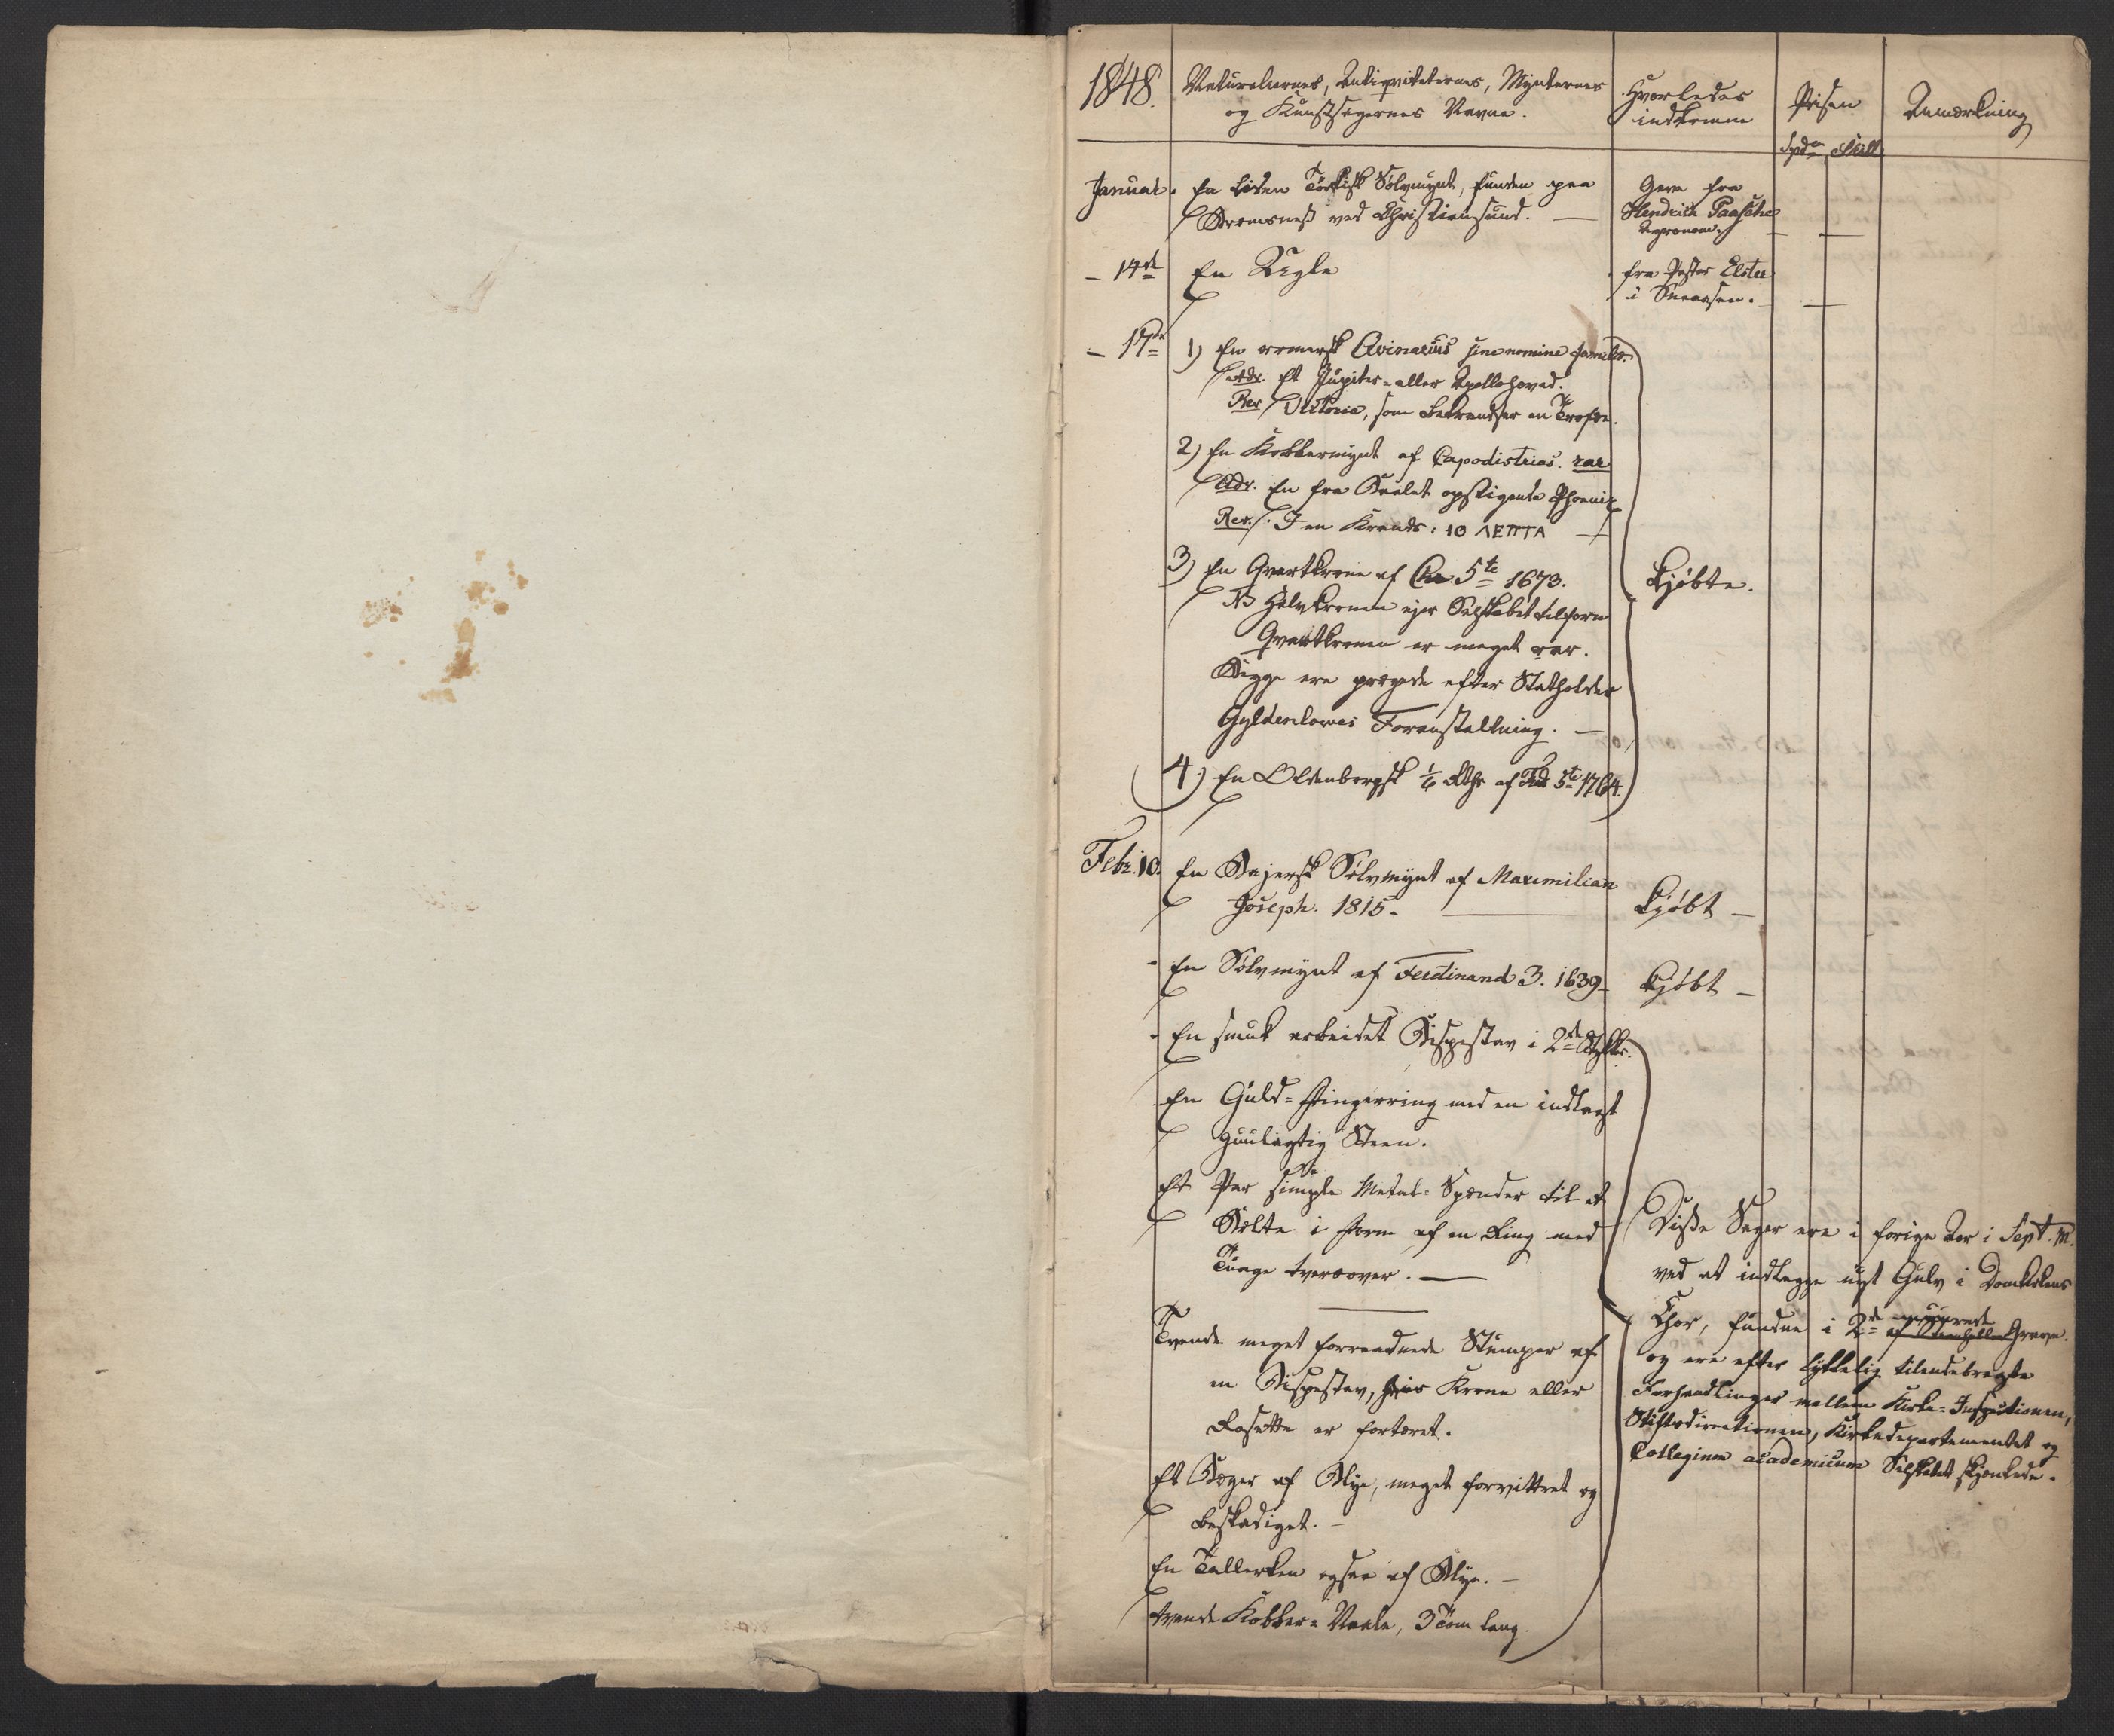 1848.
Naturaliernes, Antiqviteternes, Mynternes
og Kunstsagernes Navne.
Hvorledes
indkomne
Prisen
Spd. Skill
Anmærkning
Januar.
En liden Tyrkisk Sølvmynt, funden paa
ved Christiansund. —
Gave fra
Hendrich Paasche
—
— 14de
En Nøgle
fra Pastor Elster
i Snaasen. —
— 17de
1) En romersk Qvinarius sine nomine familiæ.
Adv. Et Jupiter- eller Apollohoved.
Rev. Victoria, som bekrandser en Trofæe.
2) En Kobbermynt af Capodistrias. rar
Adv. En fra Baalet opstigende Phoenix
Rev. I en Krands: 10 ΛΕΠΤΑ —
3) En Qvartkrone af Chr 5te 1673.
NB Halvkronen ejer Selskabet tilforn
Qvartkronen er meget rar.
Begge ere prægede efter Statholder
Gyldenløves Foranstaltning. —
4.) En Oldenborgsk 1/6 Rthr af Frd 5te 1764.
kjøbte.
Febr. 10.
En Bajersk Sølvmynt af Maximilian
Joseph. 1815. —
kjøbt —
- En Sølvmynt af Ferdinand 3. 1639 —
kjøbt —
- En smuk arbeidet Bispestav i 2de Stykker.
En Guld-Fingerring med en indlagt
guulagtig Steen.
Et Par simple Metal-Spænder til et
Belte i Form af en Ring med
Tunge tversover. —
Tvende meget forraadnede Stumper af
en Bispestav, hvis Krone eller
Rosette er fortæret.
Et Bæger af Blye, meget forvittret og
beskadiget. —
En Tallerken ogsaa af Blye. —
tvende Kobber-Naale, 3 Tom lang.
Disse Sager ere i forige Aar i Sept. M.
ved at indlægge nyt Gulv i Domkirkens
Chor, fundne i 2de opmurede af Steenheller Grave.
og ere efter lykkelig tilendebragte
Forhandlinger mellem Kirke-Inspectionen,
Stiftsdirectionen, Kirkedepartementet og
Collegium academicum Selskabet skjænkede.